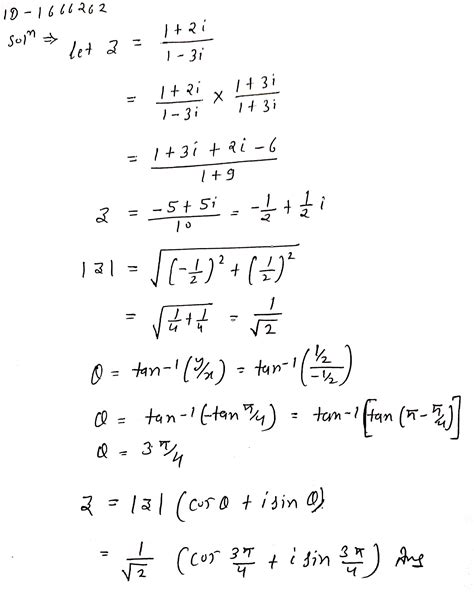 ID-1666262
Solⁿ ⇒ let z = (1+2i)/(1-3i)
= (1+2i)/(1-3i) × (1+3i)/(1+3i)
= (1+3i+2i-6)/(1+9)
z = (-5+5i)/10 = -1/2 + 1/2 i
|z| = √((-1/2)² + (1/2)²)
= √(1/4+1/4) = 1/√2
θ = tan-1(y/x) = tan-1((1/2)/(-1/2))
θ = tan-1(-tan π/4) = tan-1[tan(π-π/4)]
θ = 3π/4
z = |z| (cos θ + i sin θ)
= 1/√2 (cos 3π/4 + i sin 3π/4) Ans